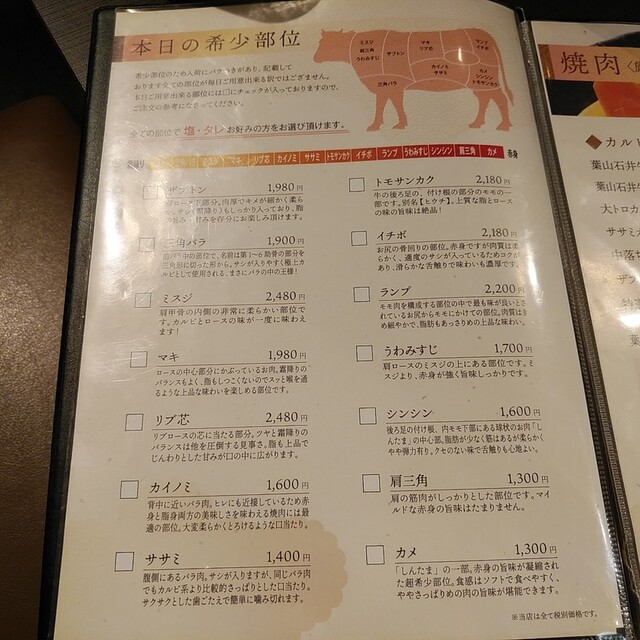 本日の希少部位
希少部位のため入荷にバラつきがあり、記載して
おります全ての部位が毎日ご用意出来る訳ではございません。
本日ご用意出来る部位には□にチェックが入っておりますので、
ご注文の参考になさってください。
全ての部位で 塩・タレ お好みの方をお選び頂けます。
ミスジ
肩三角
うわみすじ
ザブトン
マキ
リブ芯
三角バラ
カイノミ
ササミ
ランプ
イチボ
カメ
シンシン
トモサンカク
マキ リブ芯 カイノミ ササミ トモサンカク イチボ ランプ うわみすじ シンシン 肩三角 カメ 赤身
ザブトン 1,980円
三角バラ 1,900円
三角形に切った形から。サシが入りやすく極上カ
ルビとして使用される、まさにバラの中の王様!
ミスジ 2,480円
肩甲骨の内側の非常に柔らかい部位で
す。カルビとロースの味が一度に味わえ
ます!
マキ 1,980円
ロースの中心部分にかぶっているお肉。霜降りの
バランスもよく、脂もしつこくないのでスッと喉を通
るような上品な味わいを楽しめる部位です。
リブ芯 2,480円
リブロースの芯に当たる部分。ツヤと霜降りの
バランスは他を圧倒する見事さ。脂も上品で
じんわりとした甘みが口の中に広がります。
カイノミ 1,600円
背中に近いバラ肉。ヒレにも近接しているため赤
身と脂身両方の美味しさを味わえる焼肉には最
適の部位。大変柔らかくとろけるような口当たり。
ササミ 1,400円
腹側にあるバラ肉。サシが入りますが、同じバラ肉
でもカルビ系より比較的さっぱりとした口当たり。
サクサクとした歯ごたえで簡単に噛み切れます。
トモサンカク 2,180円
牛の後ろ足の、付け根の部分のモモの一
部です。別名【ヒウチ】。上質な脂とロース
の味の旨味は絶品!
イチボ 2,180円
お尻の骨回りの部位。赤身ですが肉質は柔
らかく、適度のサシが入っているためコクが
あり、滑らかな舌触りで味わいも濃厚です。
ランプ 2,200円
モモ肉を構成する部位の中で最も味が良いとさ
れているお尻からモモにかけての部位。肉質はき
め細やかで、脂肪もあっさりめの上品な味わい。
うわみすじ 1,700円
肩ロースのミスジの上にある部位です。ミ
スジより、赤身が強く旨味しっかりです。
シンシン 1,600円
後ろ足の付け根、内モモ下部にある球状のお肉「し
んたま」の中心部。脂肪が少なく筋はあるが柔らかく
やや弾力有り。クセのない味で舌触りも心地よい。
肩三角 1,300円
肩の筋肉がしっかりとした部位です。マイ
ルドな赤身の旨味はたまりません。
カメ 1,300円
「しんたま」の一部。赤身の旨味が凝縮され
た超希少部位。食感はソフトで食べやすく、
ややさっぱりめの肉の旨味が堪能できます。
※当店は全て税別価格です。
焼肉
カルビ
葉山石井
葉山石井
大トロカ
ササミ
中落